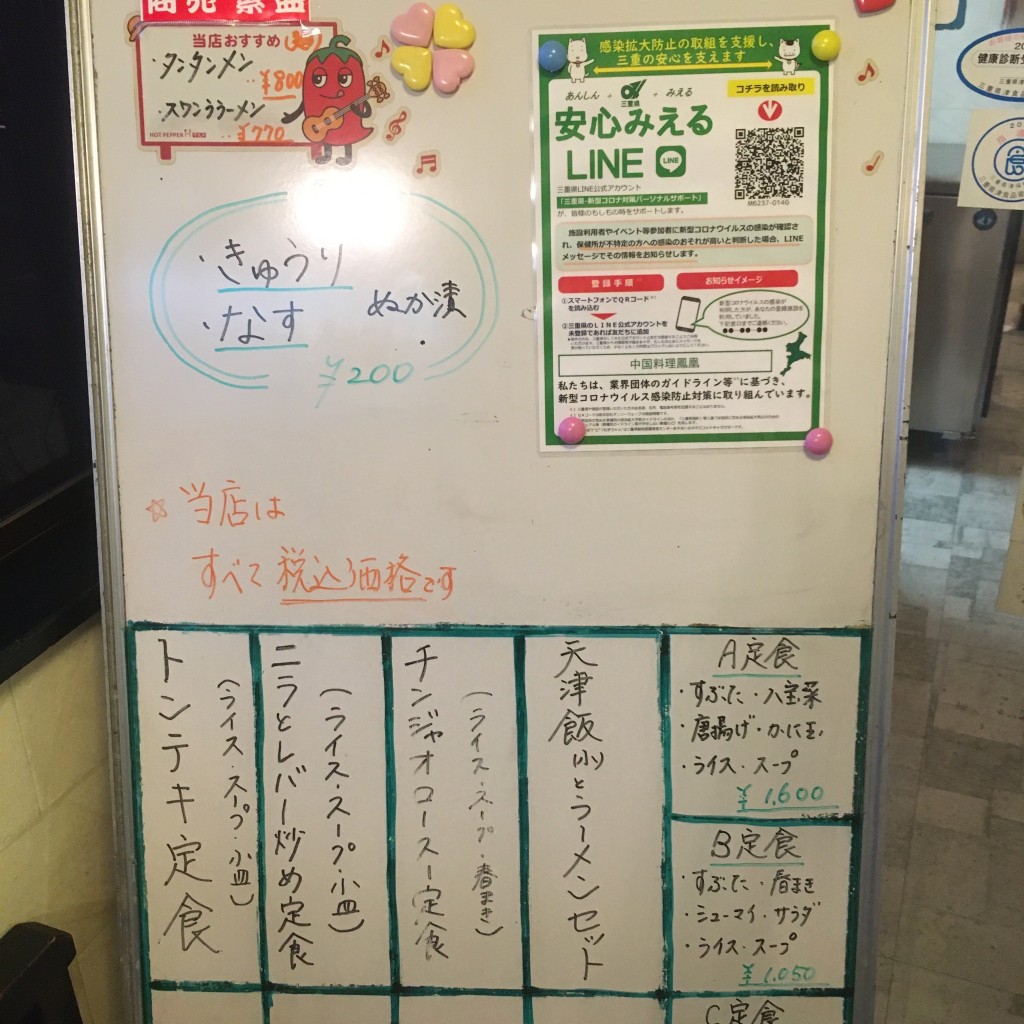 商売繁盛
当店おすすめ
・タンタンメン
¥800
・スワンララーメン
¥770
HOT PEPPER グルメ
・きゅうり
・なす
ぬか漬
¥200
☆当店は
すべて税込価格です
感染拡大防止の取組を支援し、
三重の安心を支えます
あんしん + 三重県 + みえる
安心みえる
LINE
LINE
コチラを読み取り
M6237-0140
三重県LINE公式アカウント
「三重県-新型コロナ対策パーソナルサポート」
が、皆様のもしもの時をサポートします。
施設利用者やイベント等参加者に新型コロナウイルスの感染が確認され、保健所が不特定の方への感染のおそれが高いと判断した場合、LINE
メッセージでその情報をお知らせします。
登録手順
①スマートフォンでQRコード
を読み込む
②三重県のLINE公式アカウントに
未登録であれば友だちに追加
お知らせイメージ
新型コロナウイルスの感染が
中国料理鳳凰
私たちは、業界団体のガイドライン等に基づき、
新型コロナウイルス感染防止対策に取り組んでいます。
健康診断
A定食
・すぶた・八宝菜
・唐揚げ・かに玉
・ライス・スープ
¥1,600
B定食
・すぶた・春まき
・シューマイ・サラダ
・ライス・スープ
¥1,050
C定食
天津飯小とラーメンセット
チンジャオロース定食
(ライス・スープ・春まき)
ニラとレバー炒め定食
(ライス・スープ・小皿)
トンテキ定食
(ライス・スープ・小皿)